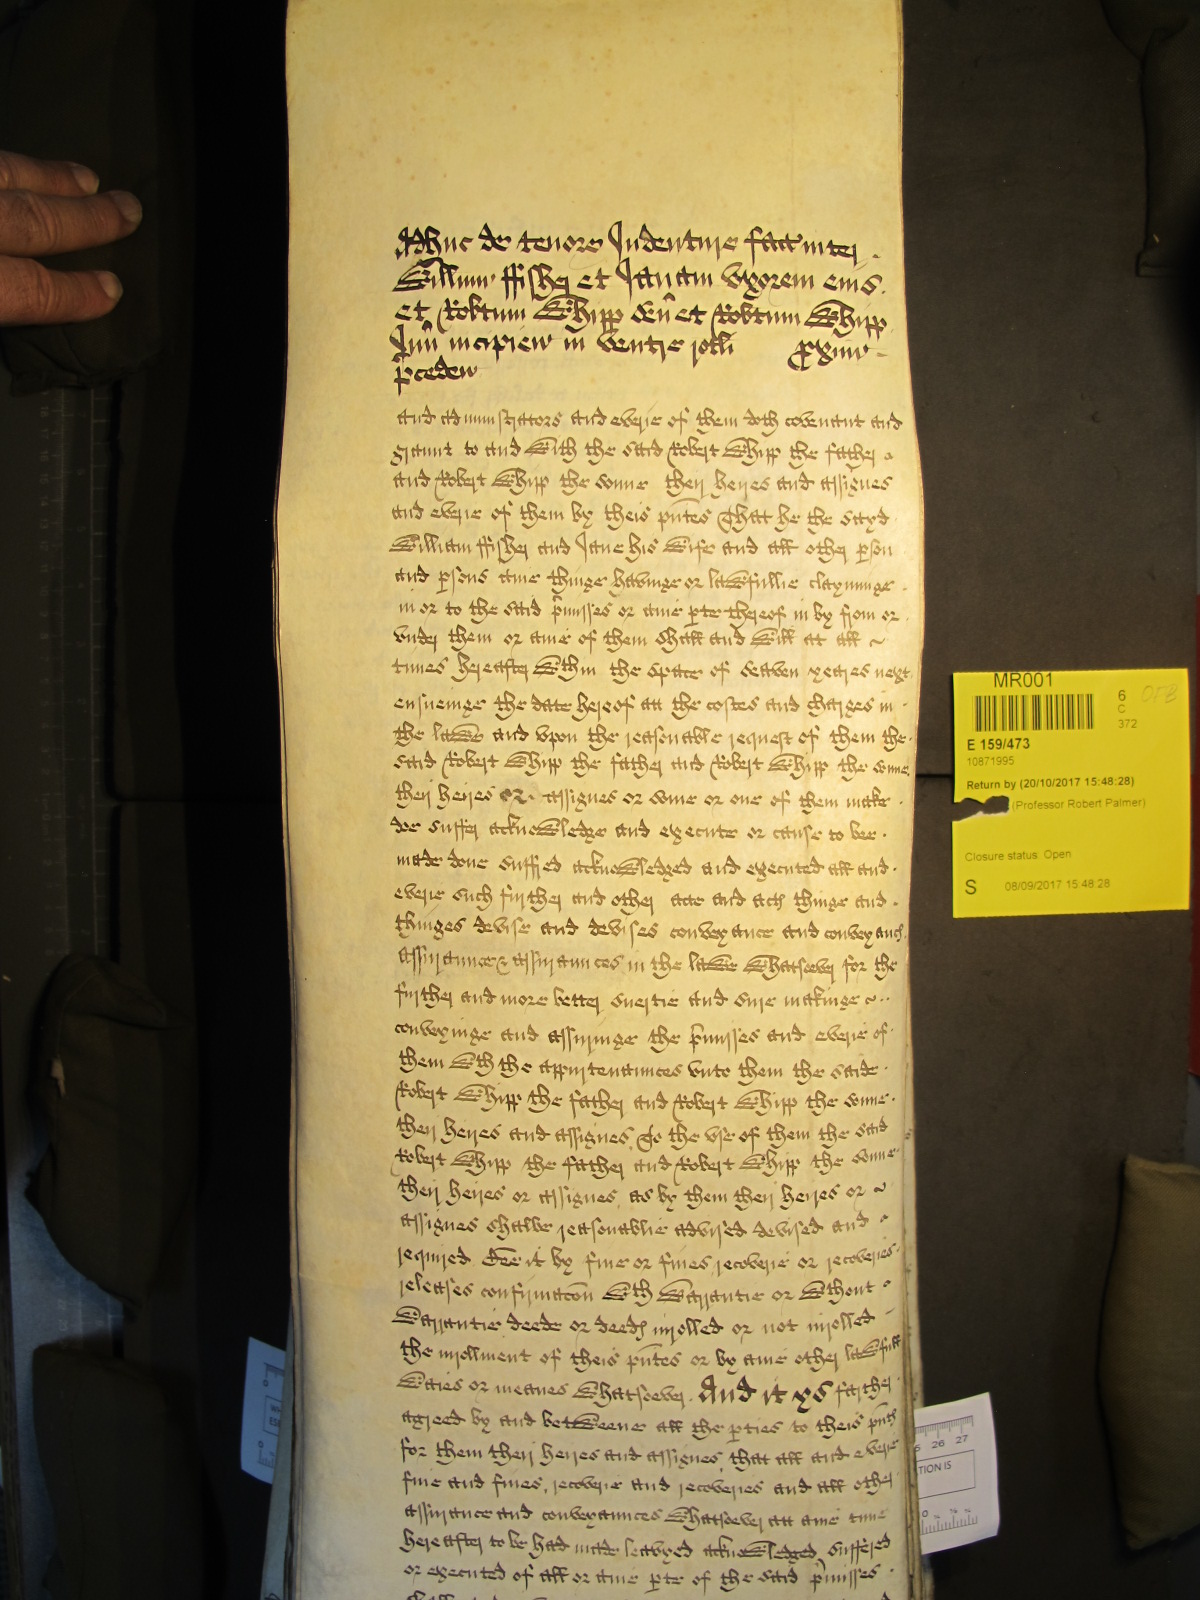 Adhuc de tenore Indenture fact inter
Willum ffisher et Janam vxorem eius
et Robtum Whipp Sen et Robtum Whipp
Jun incipien in ventre rotli CXXIIII
pceden
and administrators and everie of them doth covenant and
graunt to and with the said Robert Whipp the father
and Robert Whipp the sonne their heires and assignes
and everie of them by theis pntes That he the sayd
William ffisher and Jane his wife and all other pson
and psons anie thinge havinge or lawfullie clayminge
in or to the said pmisses or anie pte thereof in by from or
vnder them or anie of them shall and will at all
times hereafter wthin the space of seaven yeares next
ensueinge the date hereof att the costes and charges in
the lawe and vpon the reasonable request of them the
said Robert Whipp the father and Robert Whipp the sonne
their heires or assignes or some or one of them make
doe suffer acknowledge and execute or cause to bee
made done suffred acknowledged and executed all and
everie such further and other acte and acts thinge and
thinges devise and devises conveyance and conveyanc
Assurance & assurances in the lawe whatsoever for the
further and more better suertie and sure makinge
conveyinge and assuringe the pmisses and everie of
them wth the appurtenaunces vnto them the saide
Robert Whipp the father and Robert Whipp the sonne
their heires and assignes To the vse of them the said
Robert Whipp the father and Robert Whipp the sonne
their heires or assignes as by them their heires or
assignes shalbe reasonablie advised devised and
required Bee it by fine or fines recoverie or recoveries
releases confirmacon wth warrantie or wthout
warrantie deede or deeds inrolled or not inrolled
the inrollment of theis pntes or by anie other lawfull
waies or meanes whatsoever. And it ys further
agreed by and betweene all the pties to theis pnts
for them their heires and assignes that all and everie
fine and fines, recoverie and recoveries and all other
assurance and conveyaunces whatsoever att anie time
hereafter to be had made leavyed acknowledged suffered
or executed of all or anie pte of the said pmisses
MR001
6
C
372
OFB
E 159/473
10871995
Return by (20/10/2017 15:48:28)
(Professor Robert Palmer)
Closure status: Open
S 08/09/2017 15:48:28
26 27
TION IS